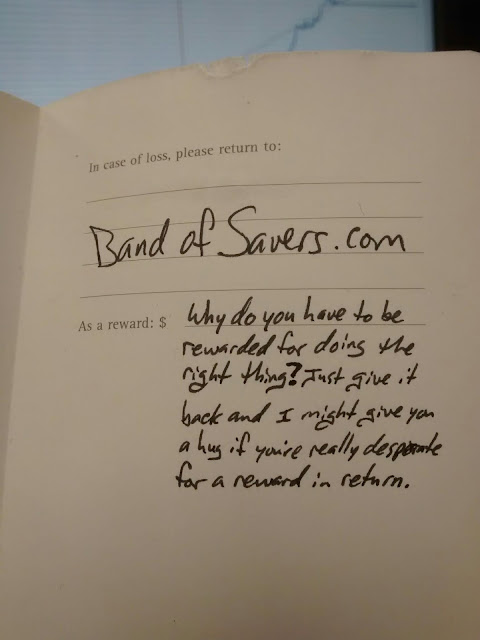 In case of loss, please return to:
Band of Savers.com
As a reward: $ Why do you have to be
rewarded for doing the
right thing? Just give it
back and I might give you
a hug if you're really desperate
for a reward in return.